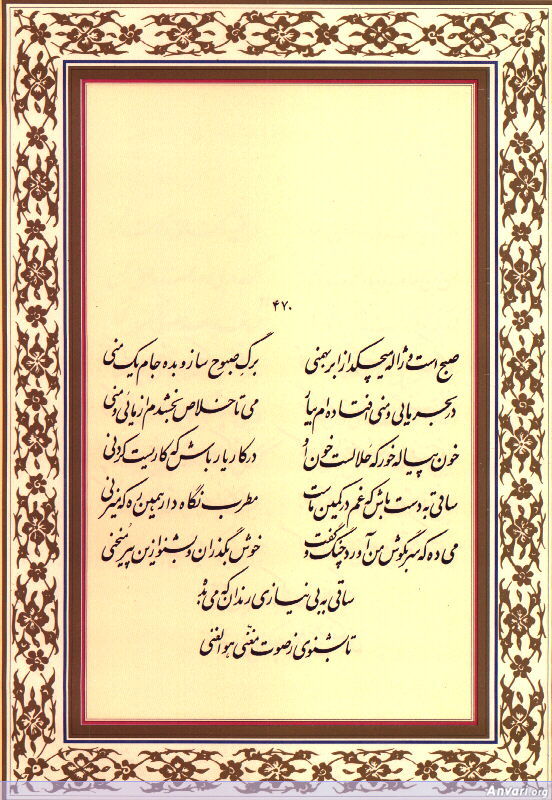 ۴۷۰
صبح است و ژاله میچکد از ابر بهمنی برگ صبوح ساز و بده جام یک منی
در بحر مایی و منی افتاده ام بیار می تا خلاص بخشدم از مایی و منی
خون پیاله خور که حلالست خون او در کار یار باش که کاریست کردنی
ساقی به دست باش که غم در کمین ماست مطرب نگاه دار همین ره که میزنی
می ده که سر بگوش من آورد چنگ و گفت خوش بگذران و بشنو ازین پیر منحنی
ساقی به بی نیازی رندان که می بده
تا بشنوی ز صوت مغنّی هوالغنی
Anvari.org